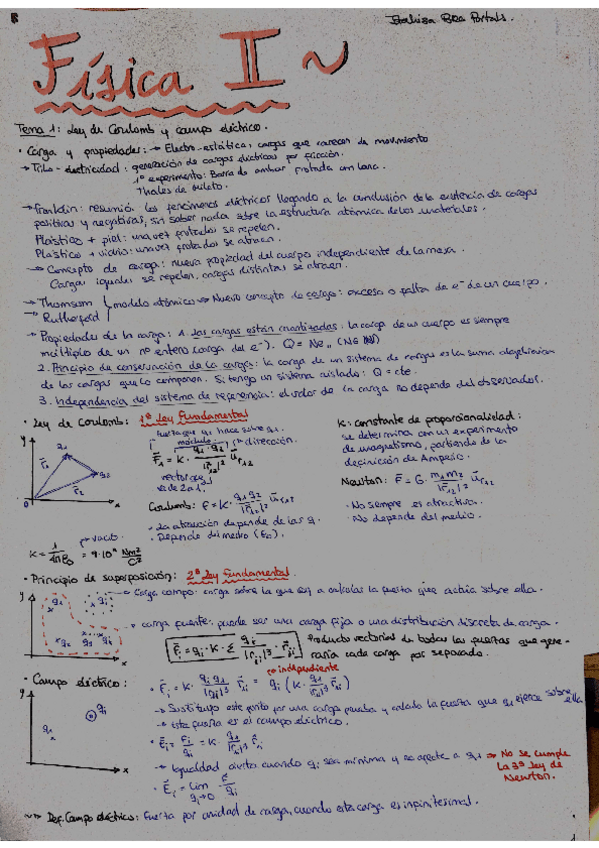 Física II ~
Tema 1: Ley de Coulomb y campo eléctrico.
· Carga y propiedades: → Electro-estática, cargas que carecen de movimiento
→ Tribo-electricidad: generación de cargas eléctricas por fricción.
1º experimento: Barra de ambar frotada con lana.
Thales de Mileto.
→ Franklin: resumió los fenómenos eléctricos llegando a la conclusión de la existencia de cargas
positivas y negativas, sin saber nada sobre la estructura atómica de los materiales.
Plástico + piel: una vez frotados se repelen.
Plástico + vidrio: una vez frotados se atraen.
→ Concepto de carga: nueva propiedad del cuerpo independiente de la masa.
Cargas iguales se repelen, cargas distintas se atraen.
→ Thomsom
→ Rutherford
modelo atómico → Nuevo concepto de carga: exceso o falta de e⁻ de un cuerpo.
→ Propiedades de la carga: 1. Las cargas están cuantizadas: la carga de un cuerpo es siempre
múltiplo de un nº entero (carga del e⁻). Q = Ne,, (N∈ℕ)
2. Principio de conservación de la carga: la carga de un sistema de cargas es la suma algebraica
de las cargas que lo componen. Si tengo un sistema aislado: Q = cte.
3. Independencia del sistema de referencia: el valor de la carga no depende del observador.
· Ley de Coulomb: 1ª Ley Fundamental
fuerza que q₁ hace sobre q₂.
módulo dirección.
F⃗₁ = K · q₁ · q₂ / |r⃗₁₂|² u⃗r₁₂
vector que
va de 2 a 1.
Coulomb: F = K · q₁q₂ / |r⃗₁₂|² u⃗r₁₂
· La atracción depende de las q.
· Depende del medio (ε₀).
K: constante de proporcionalidad:
se determina con un experimento
de magnetismo, partiendo de la
definición de Amperio.
Newton: F⃗ = G · m₁m₂ / |r⃗₁₂|² u⃗r₁₂
· No siempre es atractiva.
· No depende del medio.
y
q₁
r⃗₁
q₂
r⃗₂
0
x
vacío
K = 1 / 4πε₀ = 9·10⁹ Nm² / C²
· Principio de superposición: 2ª Ley Fundamental.
→ Carga campo: carga sobre la que voy a calcular la fuerza que actúa sobre ella.
→ carga fuente: puede ser una carga fija o una distribución discreta de carga.
F⃗ᵢ = qᵢ · K · Σ qⱼ / |r⃗ⱼᵢ|³ · r⃗ⱼᵢ
Producto vectorial de todas las fuerzas que gene-
raría cada carga por separado.
y
q₁
qᵢ
q₂
qⱼ
x
· Campo eléctrico:
independiente
· F⃗ᵢ = K · qᵢq₁ / |r⃗₁ᵢ|³ r⃗₁ᵢ = qᵢ (K · q₁ / |r⃗₁ᵢ|³ r⃗₁ᵢ)
→ Sustituyo este punto por una carga prueba y calculo la fuerza que q₁ ejerce sobre ella
→ esta fuerza es el campo eléctrico.
· E⃗ᵢ = F⃗ᵢ / qᵢ = K · q₁ / |r⃗₁ᵢ|³ r⃗₁ᵢ
→ Igualdad cierta cuando qᵢ sea mínima y no afecte a q₁ ⇒ No se cumple
la 3ª ley de
Newton.
· E⃗ᵢ = lim qᵢ→0 F⃗ / qᵢ
y
qᵢ
q₁
x
~> Def. Campo eléctrico: Fuerza por unidad de carga, cuando esta carga es infinitesimal.